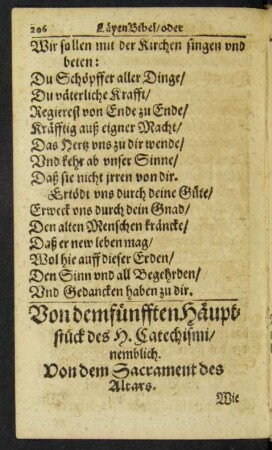 206 Läyen Bibel/ oder
Wir sollen mit der Kirchen singen vnd
beten:
Du Schöpffer aller Dinge/
Du väterliche Krafft/
Regierest von Ende zu Ende/
Kräfftig auß eigner Macht/
Das Hertz vns zu dir wende/
Vnd kehr ab vnser Sinne/
Daß sie nicht jrren von dir.
Ertödt vns durch deine Güte/
Erweck vns durch dein Gnad/
Den alten Menschen kräncke/
Daß er new leben mag/
Wol hie auff dieser Erden/
Den Sinn vnd all Begehrden/
Vnd Gedancken haben zu dir.
Von dem fünfften Häupt-
stück des H. Catechismi/
nemblich.
Von dem Sacrament des
Altars.
Wie